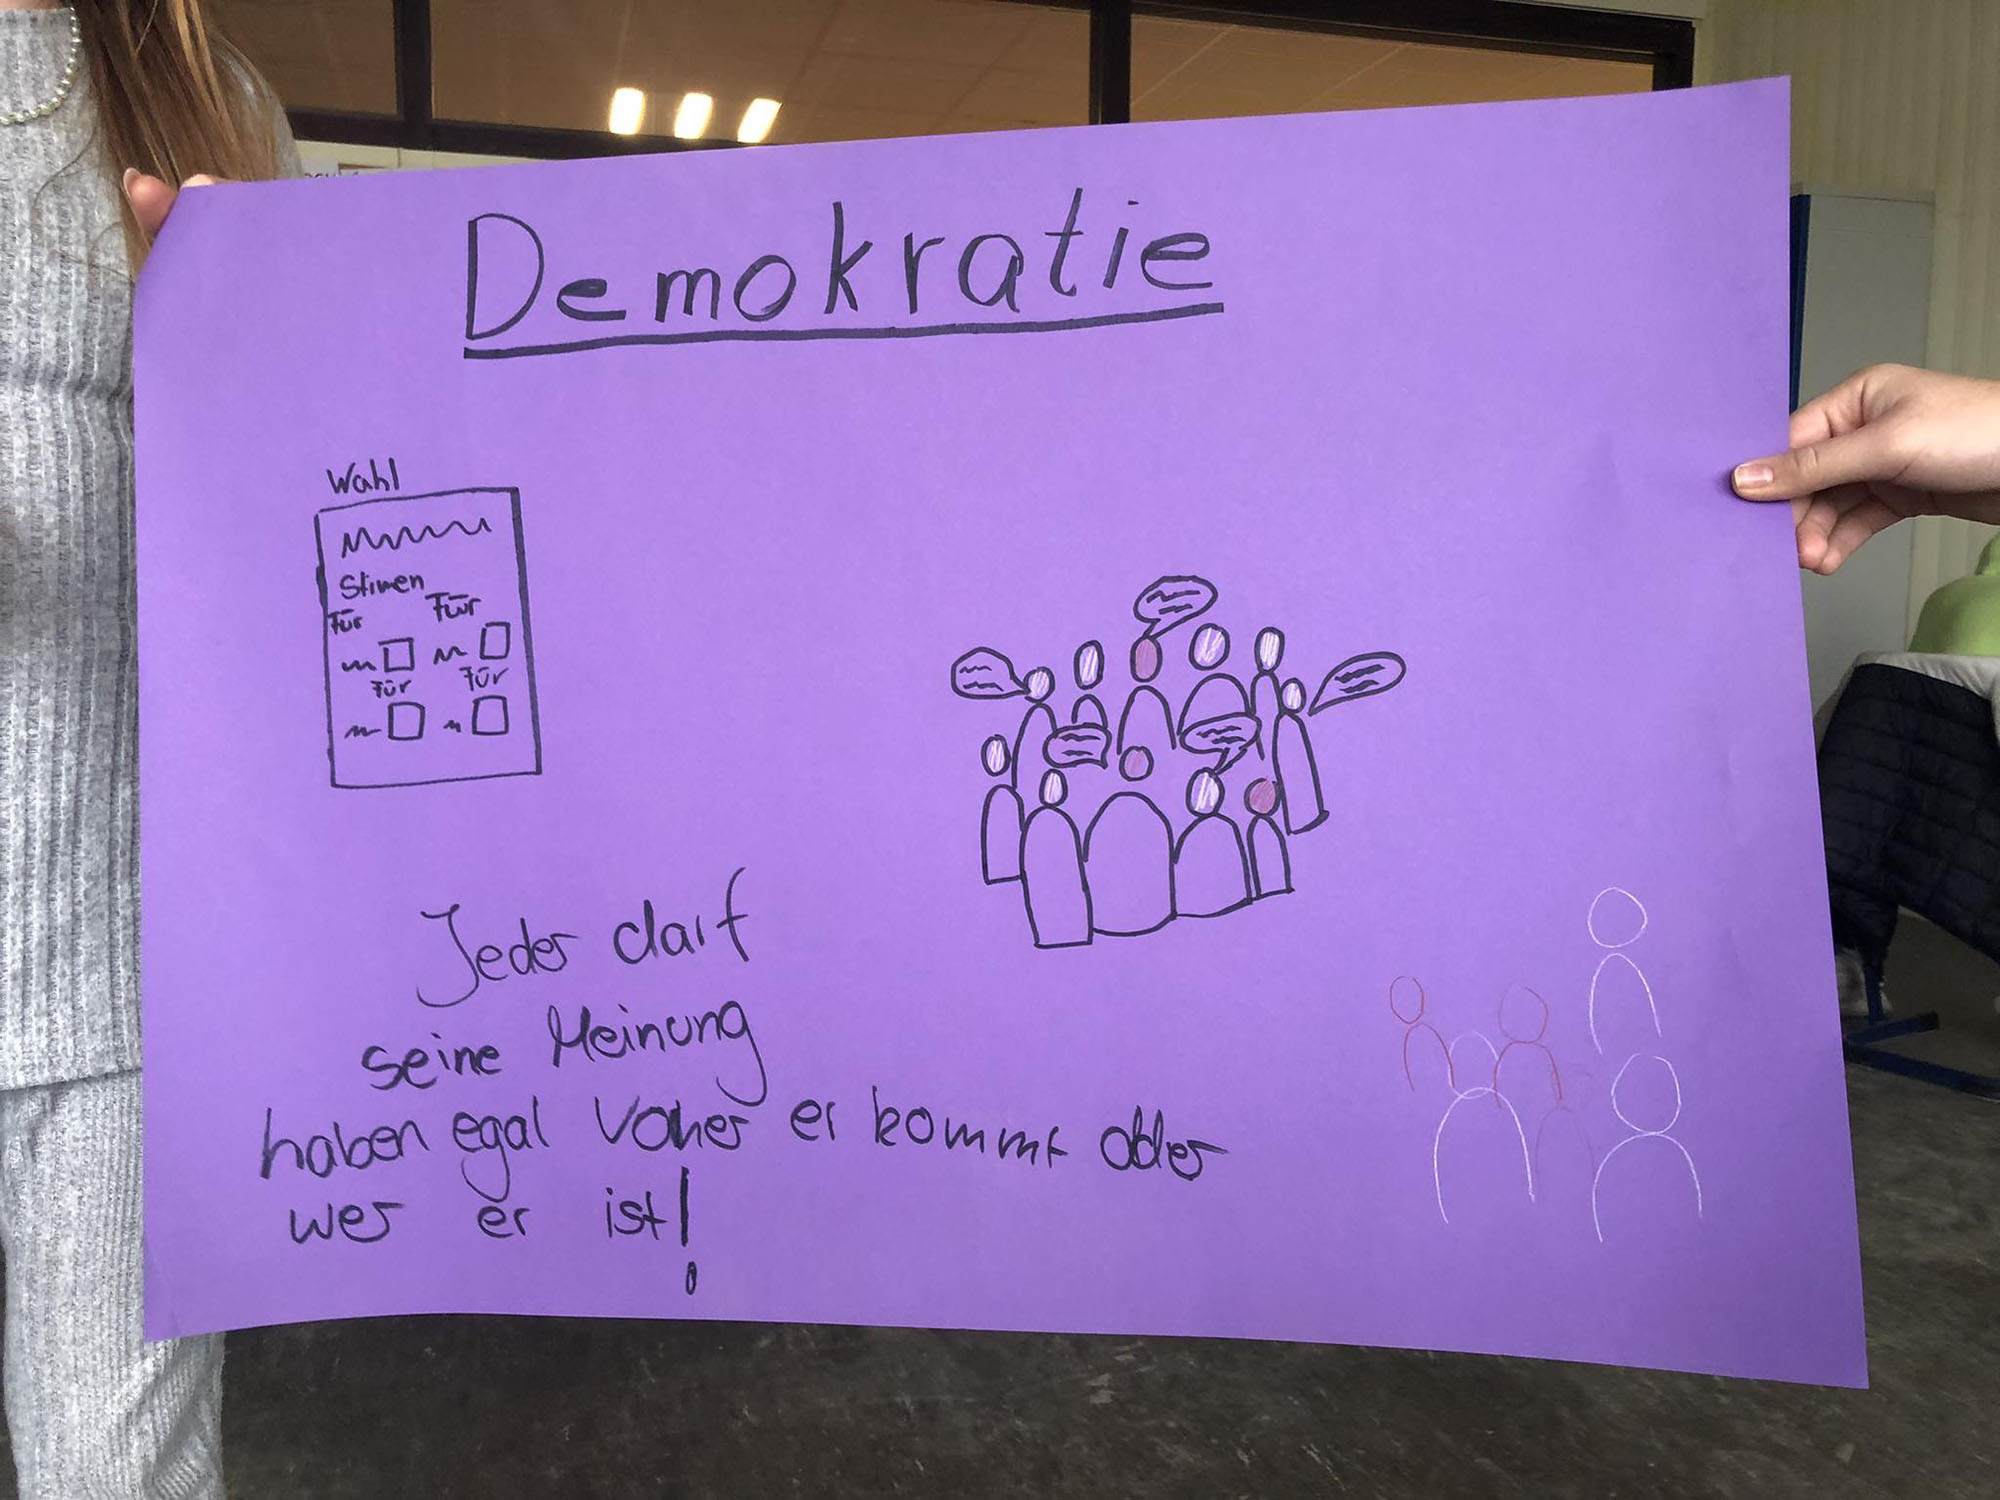 Demokratie
Wahl
Stimen
Für Für
Für Für
Jeder darf
seine Meinung
haben egal voher er kommt oder
wer er ist!